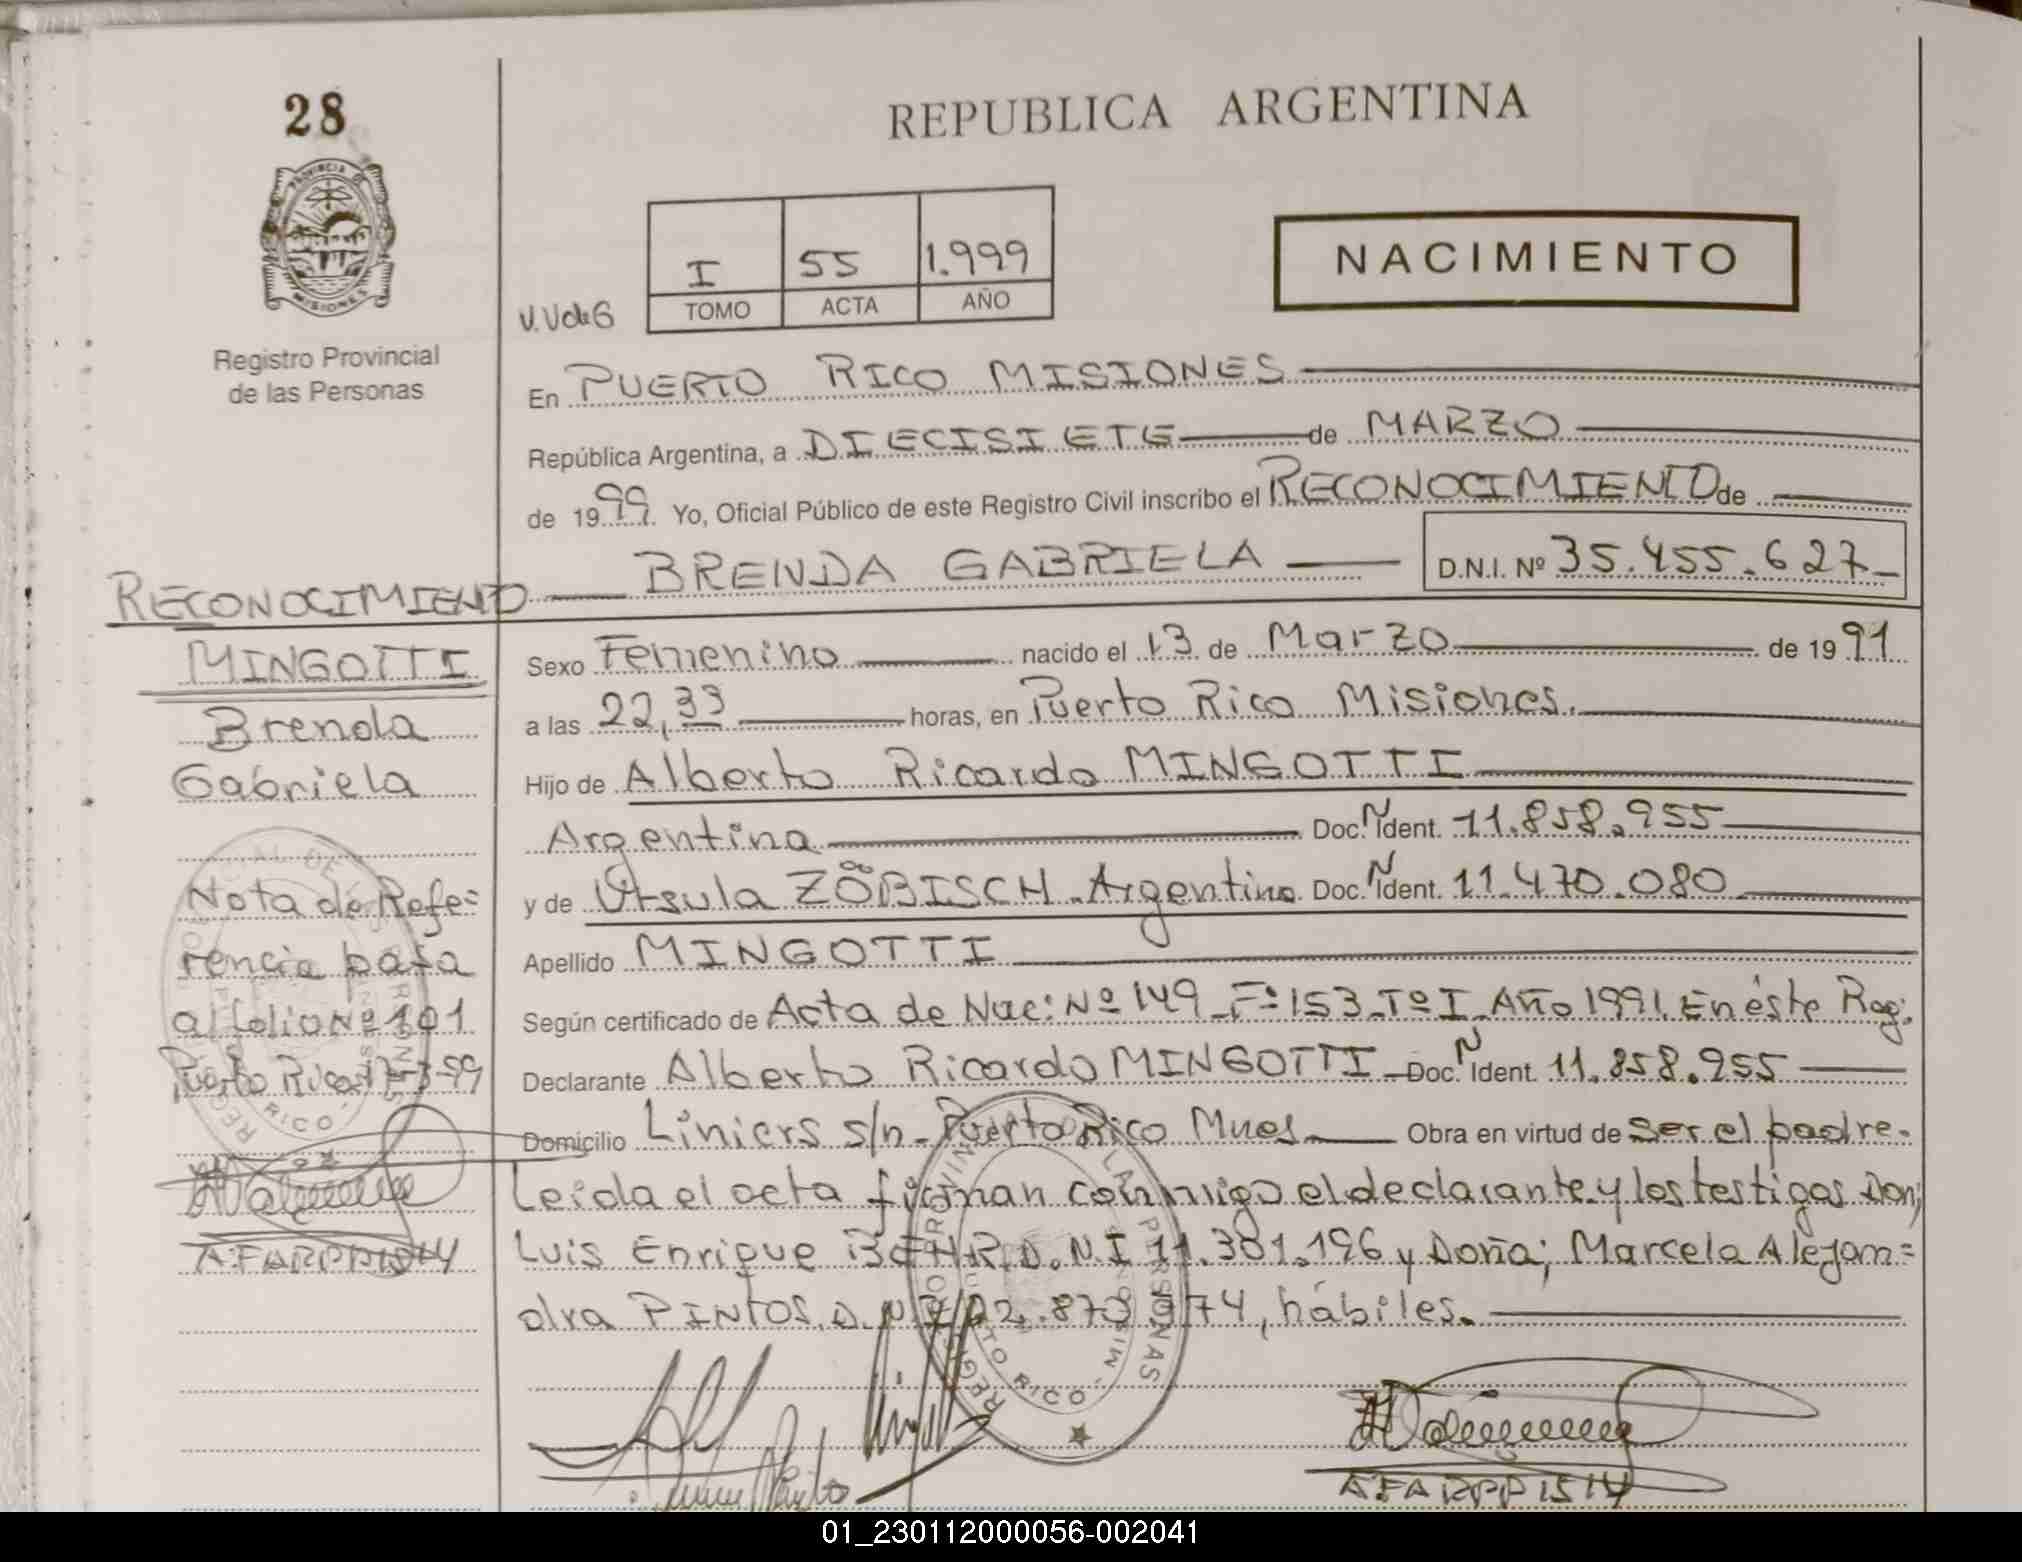 28
REPUBLICA ARGENTINA
PROVINCIA DE
MISIONES
Registro Provincial
de las Personas
I 55 1.999
V.VdeG
TOMO ACTA AÑO
NACIMIENTO
En PUERTO RICO MISIONES
República Argentina, a DIECISIETE de MARZO
de 1999. Yo, Oficial Público de este Registro Civil inscribo el RECONOCIMIENTO de
BRENDA GABRIELA D.N.I. Nº 35.455.627
Sexo Femenino nacido el 13 de Marzo de 1991
a las 22,33 horas, en Puerto Rico Misiones.
Hijo de Alberto Ricardo MINGOTTI
Argentina Doc. N Ident. 11.858.955
y de Úrsula ZÖBISCH. Argentina Doc. N Ident. 11.470.080
Apellido MINGOTTI
Según certificado de Acta de Nac: Nº 149 Fº 153 Tº I Año 1991. En éste Reg:
Declarante Alberto Ricardo MINGOTTI Doc. N Ident. 11.858.955
Domicilio Liniers s/n - Puerto Rico Mnes Obra en virtud de ser el padre.
Leida el acta firman conmigo el declarante y los testigos Don;
Luis Enrique BEHR D.N.I 11.301.196 y Doña; Marcela Alejan=
dra PINTOS D.N.I 22.873.974, hábiles.
RECONOCIMIENTO
MINGOTTI
Brenda
Gabriela
Nota de Refe=
rencia pasa
al folio Nº 101
Puerto Rico 17-3-99
AFARPP1514
AFARPP1514
01_230112000056-002041